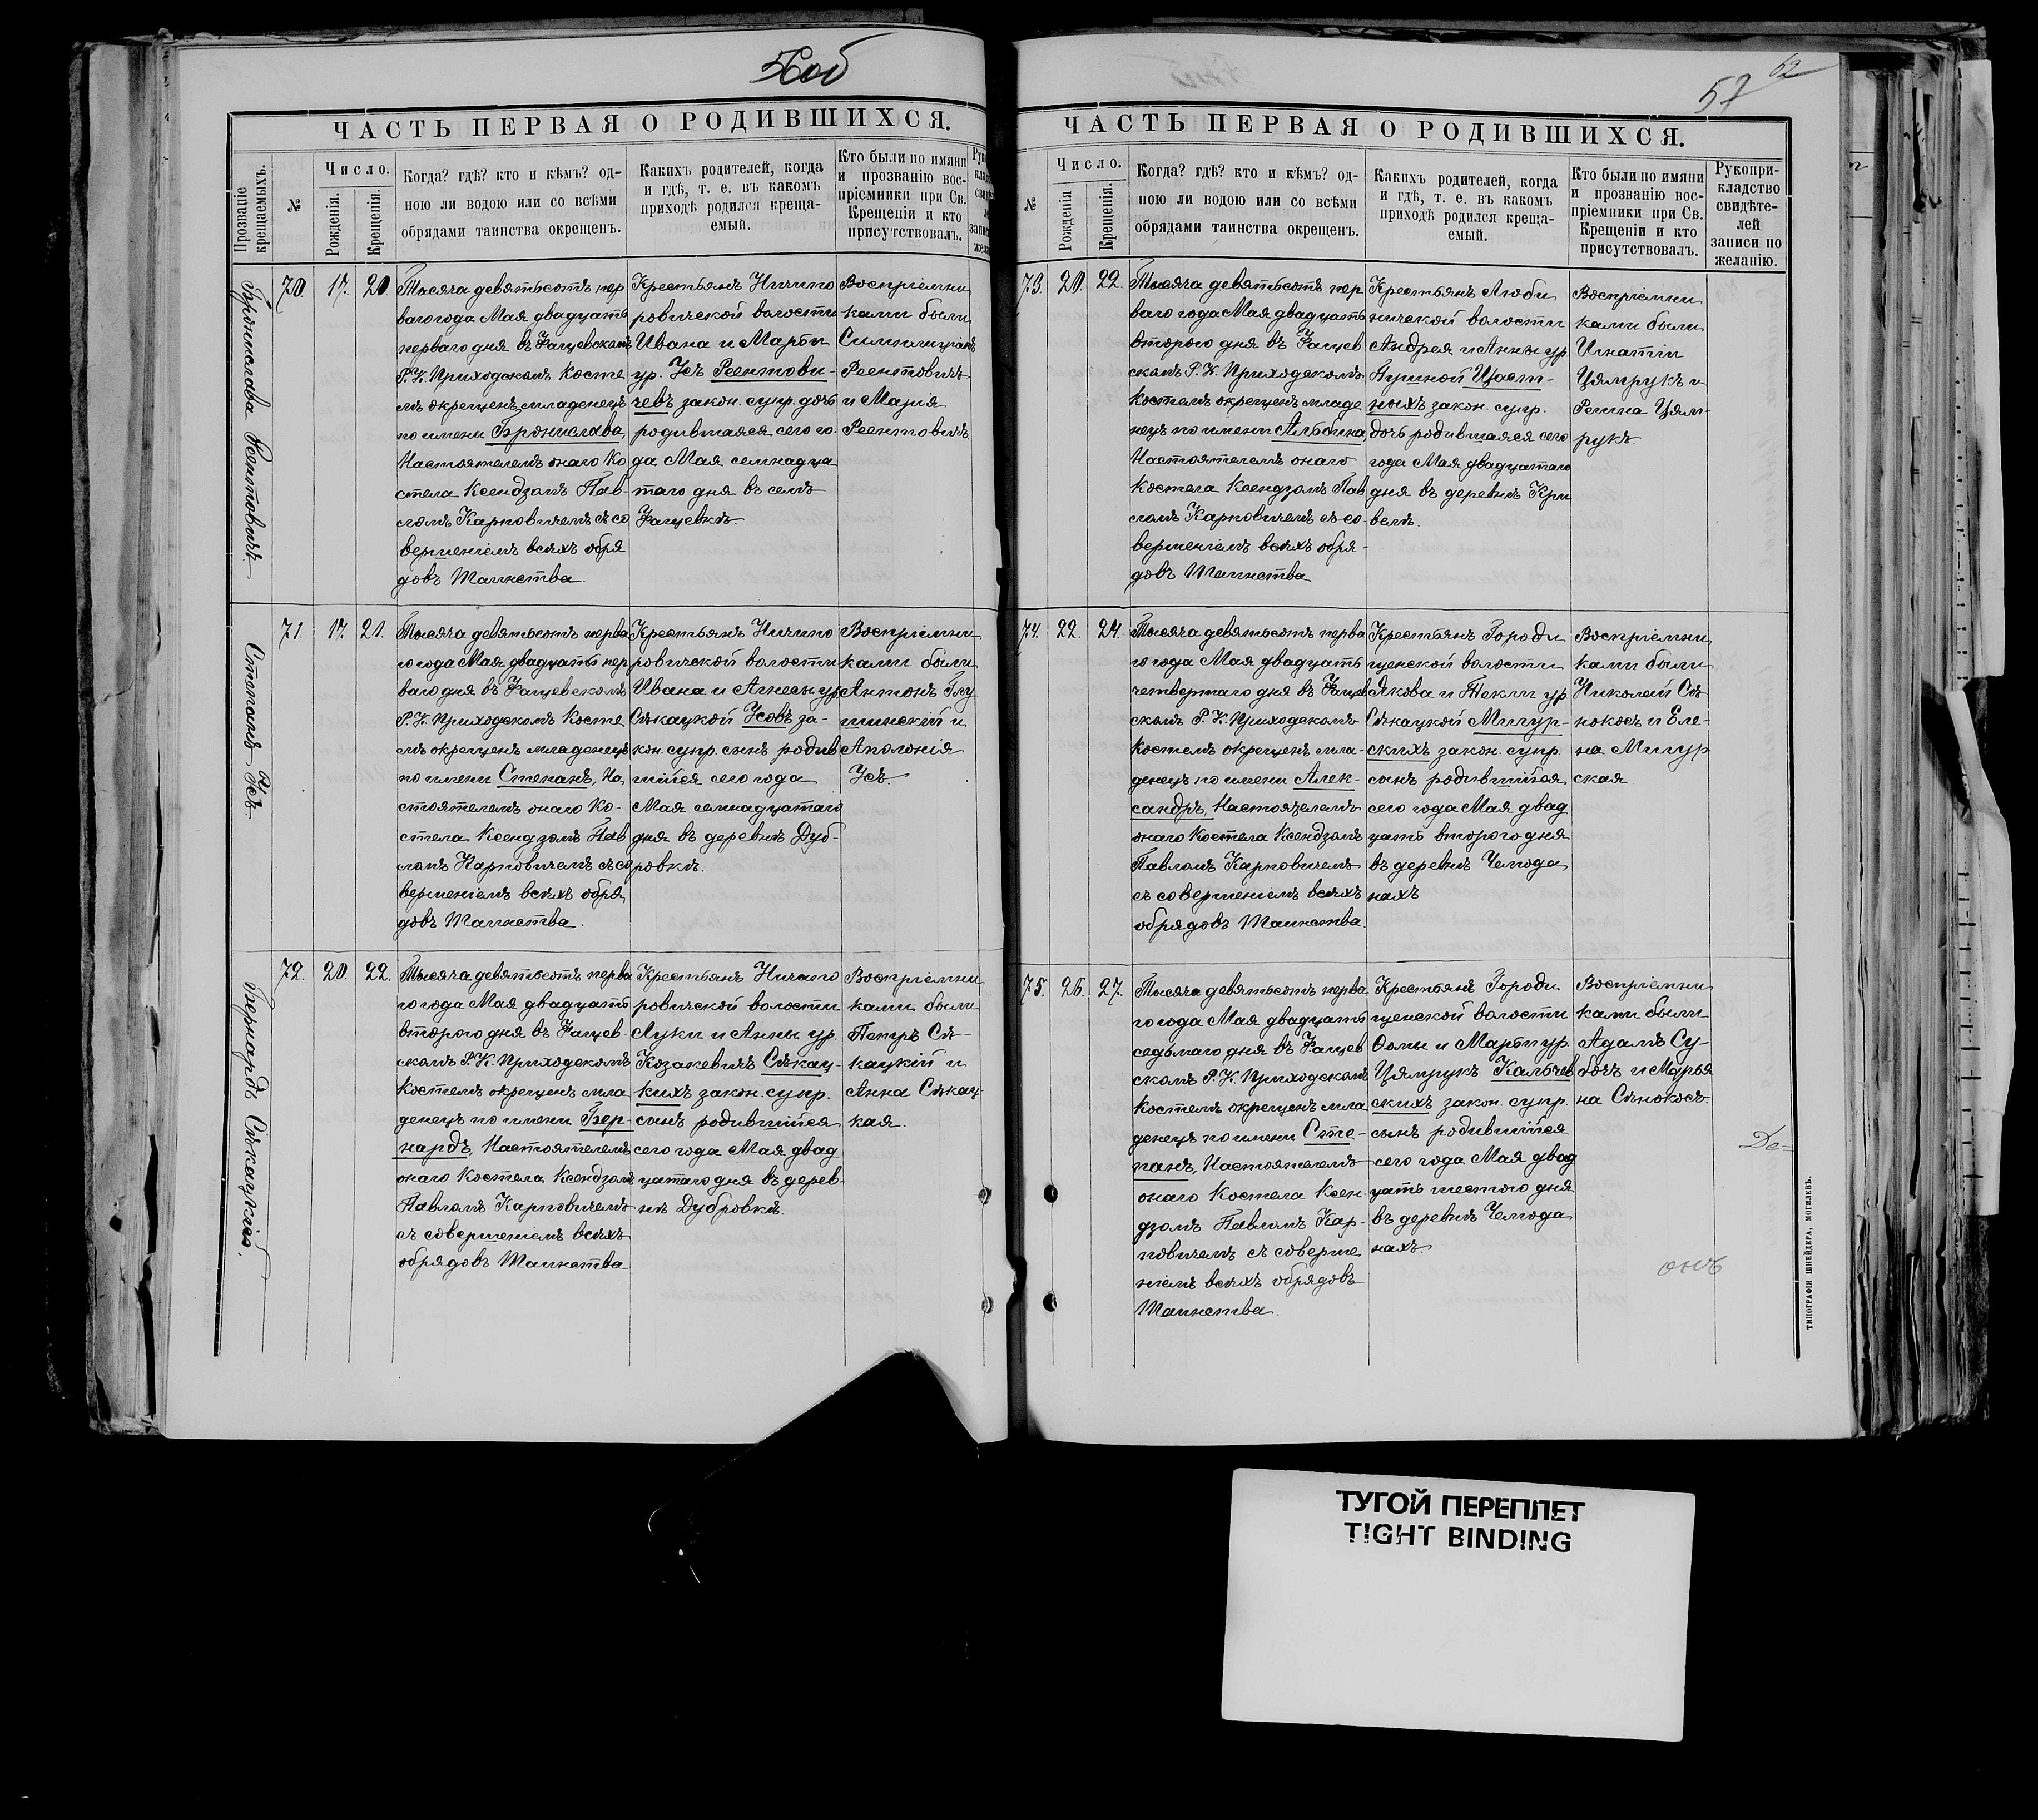 56об
ЧАСТЬ ПЕРВАЯ О РОДИВШИХСЯ.
Прозваніе
крещаемыхъ.
№
Число.
Рожденія.
Крещенія.
Когда? гдѣ? кто и кѣмъ? од-
ною ли водою или со всѣми
обрядами таинства окрещенъ.
Какихъ родителей, когда
и гдѣ, т. е. въ какомъ
приходѣ родился креща-
емый.
Кто были по имяни
и прозванію вос-
пріемники при Св.
Крещеніи и кто
присутствовалъ.
Бронислава Реентовичъ
70. 17. 20.
Тысяча девятьсотъ пер
ваго года Мая двадцать
перваго дня въ Фащевскомъ
Р. К. Приходскомъ Косте
лѣ окрещенъ младенецъ
по имени Бронислава,
Настоятелемъ онаго Ко
стела Ксендзомъ Пав-
ломъ Карповичемъ съ со
вершеніемъ всѣхъ обря
довъ Таинства.
Крестьянъ Ничипо
ровичской волости
Ивана и Марѳи
ур. Усъ Реентови-
чевъ закон. супр. дочь
родившаяся сего го-
да Мая семнадца
таго дня въ селѣ
Фащевкѣ.
Воспріемни
ками были
Симплиціанъ
Реентовичъ
и Марія
Реентовичъ.
Степанъ Усъ
71 17. 21.
Тысяча девятьсотъ перва
го года Мая двадцать пер
ваго дня въ Фащевскомъ
Р. К. Приходскомъ Косте
лѣ окрещенъ младенецъ
по имени Степанъ, На
стоятелемъ онаго Ко-
стела Ксендзомъ Пав
ломъ Карповичемъ съ со
вершеніемъ всѣхъ обря
довъ Таинства.
Крестьянъ Ничипо
ровичской волости
Ивана и Агнесы ур
Сѣкацкой Усовъ за-
кон. супр. сынъ родив
шійся сего года
Мая семнадцатаго
дня въ деревнѣ Дуб-
ровкѣ.
Воспріемни
ками были
Антонъ Глу
шинскій и
Аполонія
Усъ.
Бернардъ Сѣкацкій.
72. 20. 22.
Тысяча девятьсотъ перва
го года Мая двадцать
второго дня въ Фащев-
скомъ Р. К. Приходскомъ
Костелѣ окрещенъ мла
денецъ по имени Бер-
нардъ, Настоятелемъ
онаго Костела Ксендзомъ
Павломъ Карповичемъ
съ совершеніемъ всѣхъ
обрядовъ Таинства
Крестьянъ Ничипо
ровичской волости
Луки и Анны ур.
Козакевичъ Сѣкац-
кихъ закон. супр.
сынъ родившійся
сего года Мая двад
цатаго дня въ дерев-
нѣ Дубровкѣ.
Воспріемни
ками были
Петръ Сѣ-
кацкій и
Анна Сѣкац
кая.
62
57
ЧАСТЬ ПЕРВАЯ О РОДИВШИХСЯ.
№
Число.
Рожденія
Крещенія.
Когда? гдѣ? кто и кѣмъ? од-
ною ли водою или со всѣми
обрядами таинства окрещенъ.
Какихъ родителей, когда
и гдѣ, т. е. въ какомъ
приходѣ родился креща-
емый.
Кто были по имяни
и прозванію вос-
пріемники при Св.
Крещеніи и кто
присутствовалъ.
Рукопри-
кладство
свидѣте-
лей
записи по
желанію.
73. 20. 22.
Тысяча девятьсотъ пер
ваго года Мая двадцать
второго дня въ Фащев
скомъ Р. К. Приходскомъ
Костелѣ окрещенъ младе
нецъ по имени Альбина,
Настоятелемъ онаго
Костела Ксендзомъ Пав
ломъ Карповичемъ съ со-
вершеніемъ всѣхъ обря-
довъ Таинства
Крестьянъ Люби
ничской волости
Андрея и Анны ур
закон. супр.
дочь родившаяся сего
года Мая двадцатаго
дня въ деревнѣ Кри
велѣ.
Воспріемни
ками были
Игнатій
Цямрукъ и
Регина Цям-
рукъ.
74. 22. 24.
Тысяча девятьсотъ перва
го года Мая двадцать
четвертаго дня въ Фащев
скомъ Р. К. Приходскомъ
Костелѣ окрещенъ мла-
денецъ по имени Алек-
сандръ, Настоятелемъ
онаго Костела Ксендзомъ
Павломъ Карповичемъ
съ совершеніемъ всѣхъ
обрядовъ Таинства.
Крестьянъ Городи
щенской волости
Якова и Теклы ур
Сѣкацкой Мигур-
скихъ закон. супр.
сынъ родившійся
сего года Мая двад
цать второго дня
въ деревнѣ Чемода
нахъ
Воспріемни
ками были
Николай Сѣ
нокосъ и Еле-
на Мигур
ская
75. 26. 27.
Тысяча девятьсотъ перва
го года Мая двадцать
седьмаго дня въ Фащев
скомъ Р. К. Приходскомъ
Костелѣ окрещенъ мла
денецъ по имени Сте-
панъ, Настоятелемъ
онаго Костела Ксен-
дзомъ Павломъ Кар-
повичемъ съ соверше
ніемъ всѣхъ обрядовъ
Таинства.
Крестьянъ Городи
щенской волости
Ѳомы и Марѳы ур
Цямрукъ Кальчев
скихъ закон. супр.
сынъ родившійся
сего года Мая двад
цать шестого дня
въ деревнѣ Чемода
нахъ
Воспріемни
ками были
Адамъ Су-
бочъ и Марья
на Сѣнокосъ.
Де=
онъ
ТИПОГРАФІЯ ШНЕЙДЕРА, МОГИЛЕВЪ.
ТУГОЙ ПЕРЕПЛЕТ
TIGHT BINDING